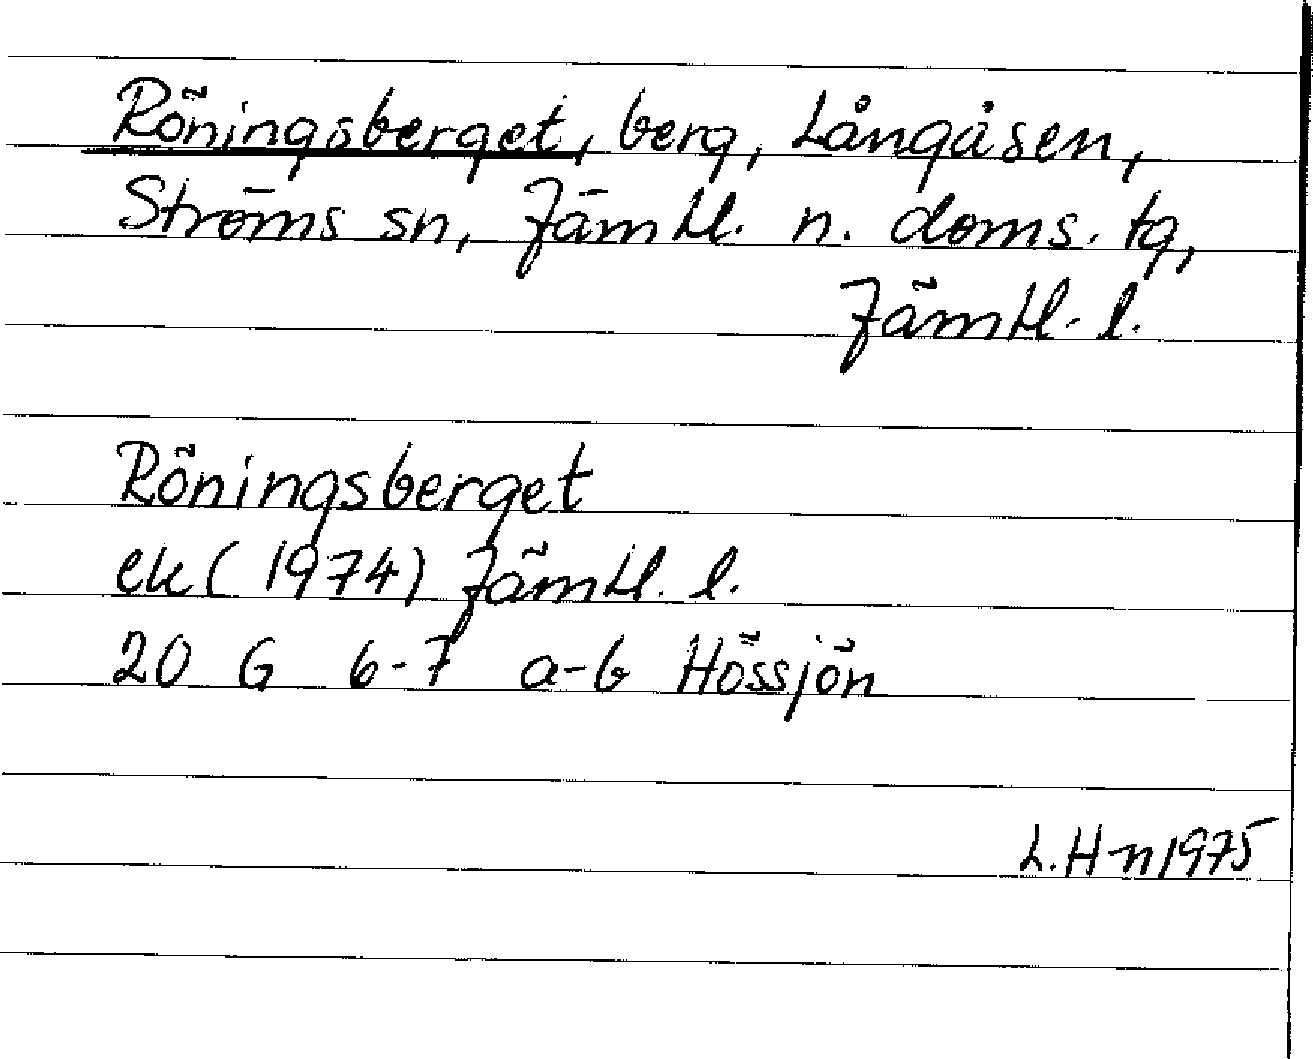 Röningsberget, berg, Långåsen,
Ströms sn, Jämtl. n. doms. tg,
Jämtl. l.
Röningsberget
ek (1974) Jämtl. l.
20 G 6-7 a-b Hössjön
L. H-n 1975